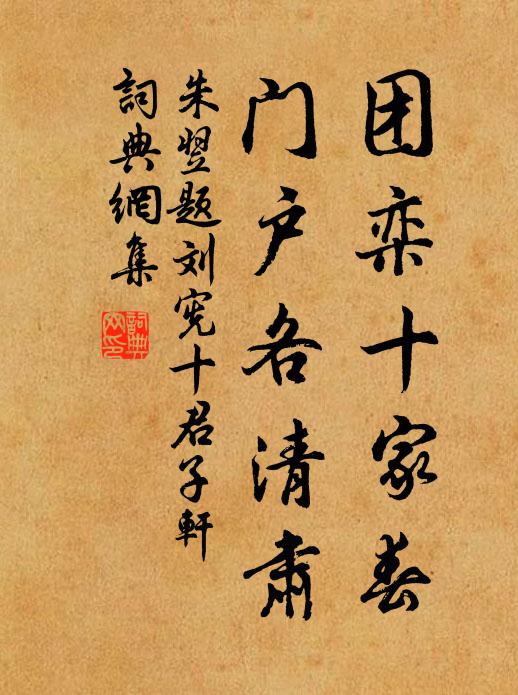 团栾十家春
门户各清肃
朱翌题刘宪十君子軒
詞典網集
詞典
网印